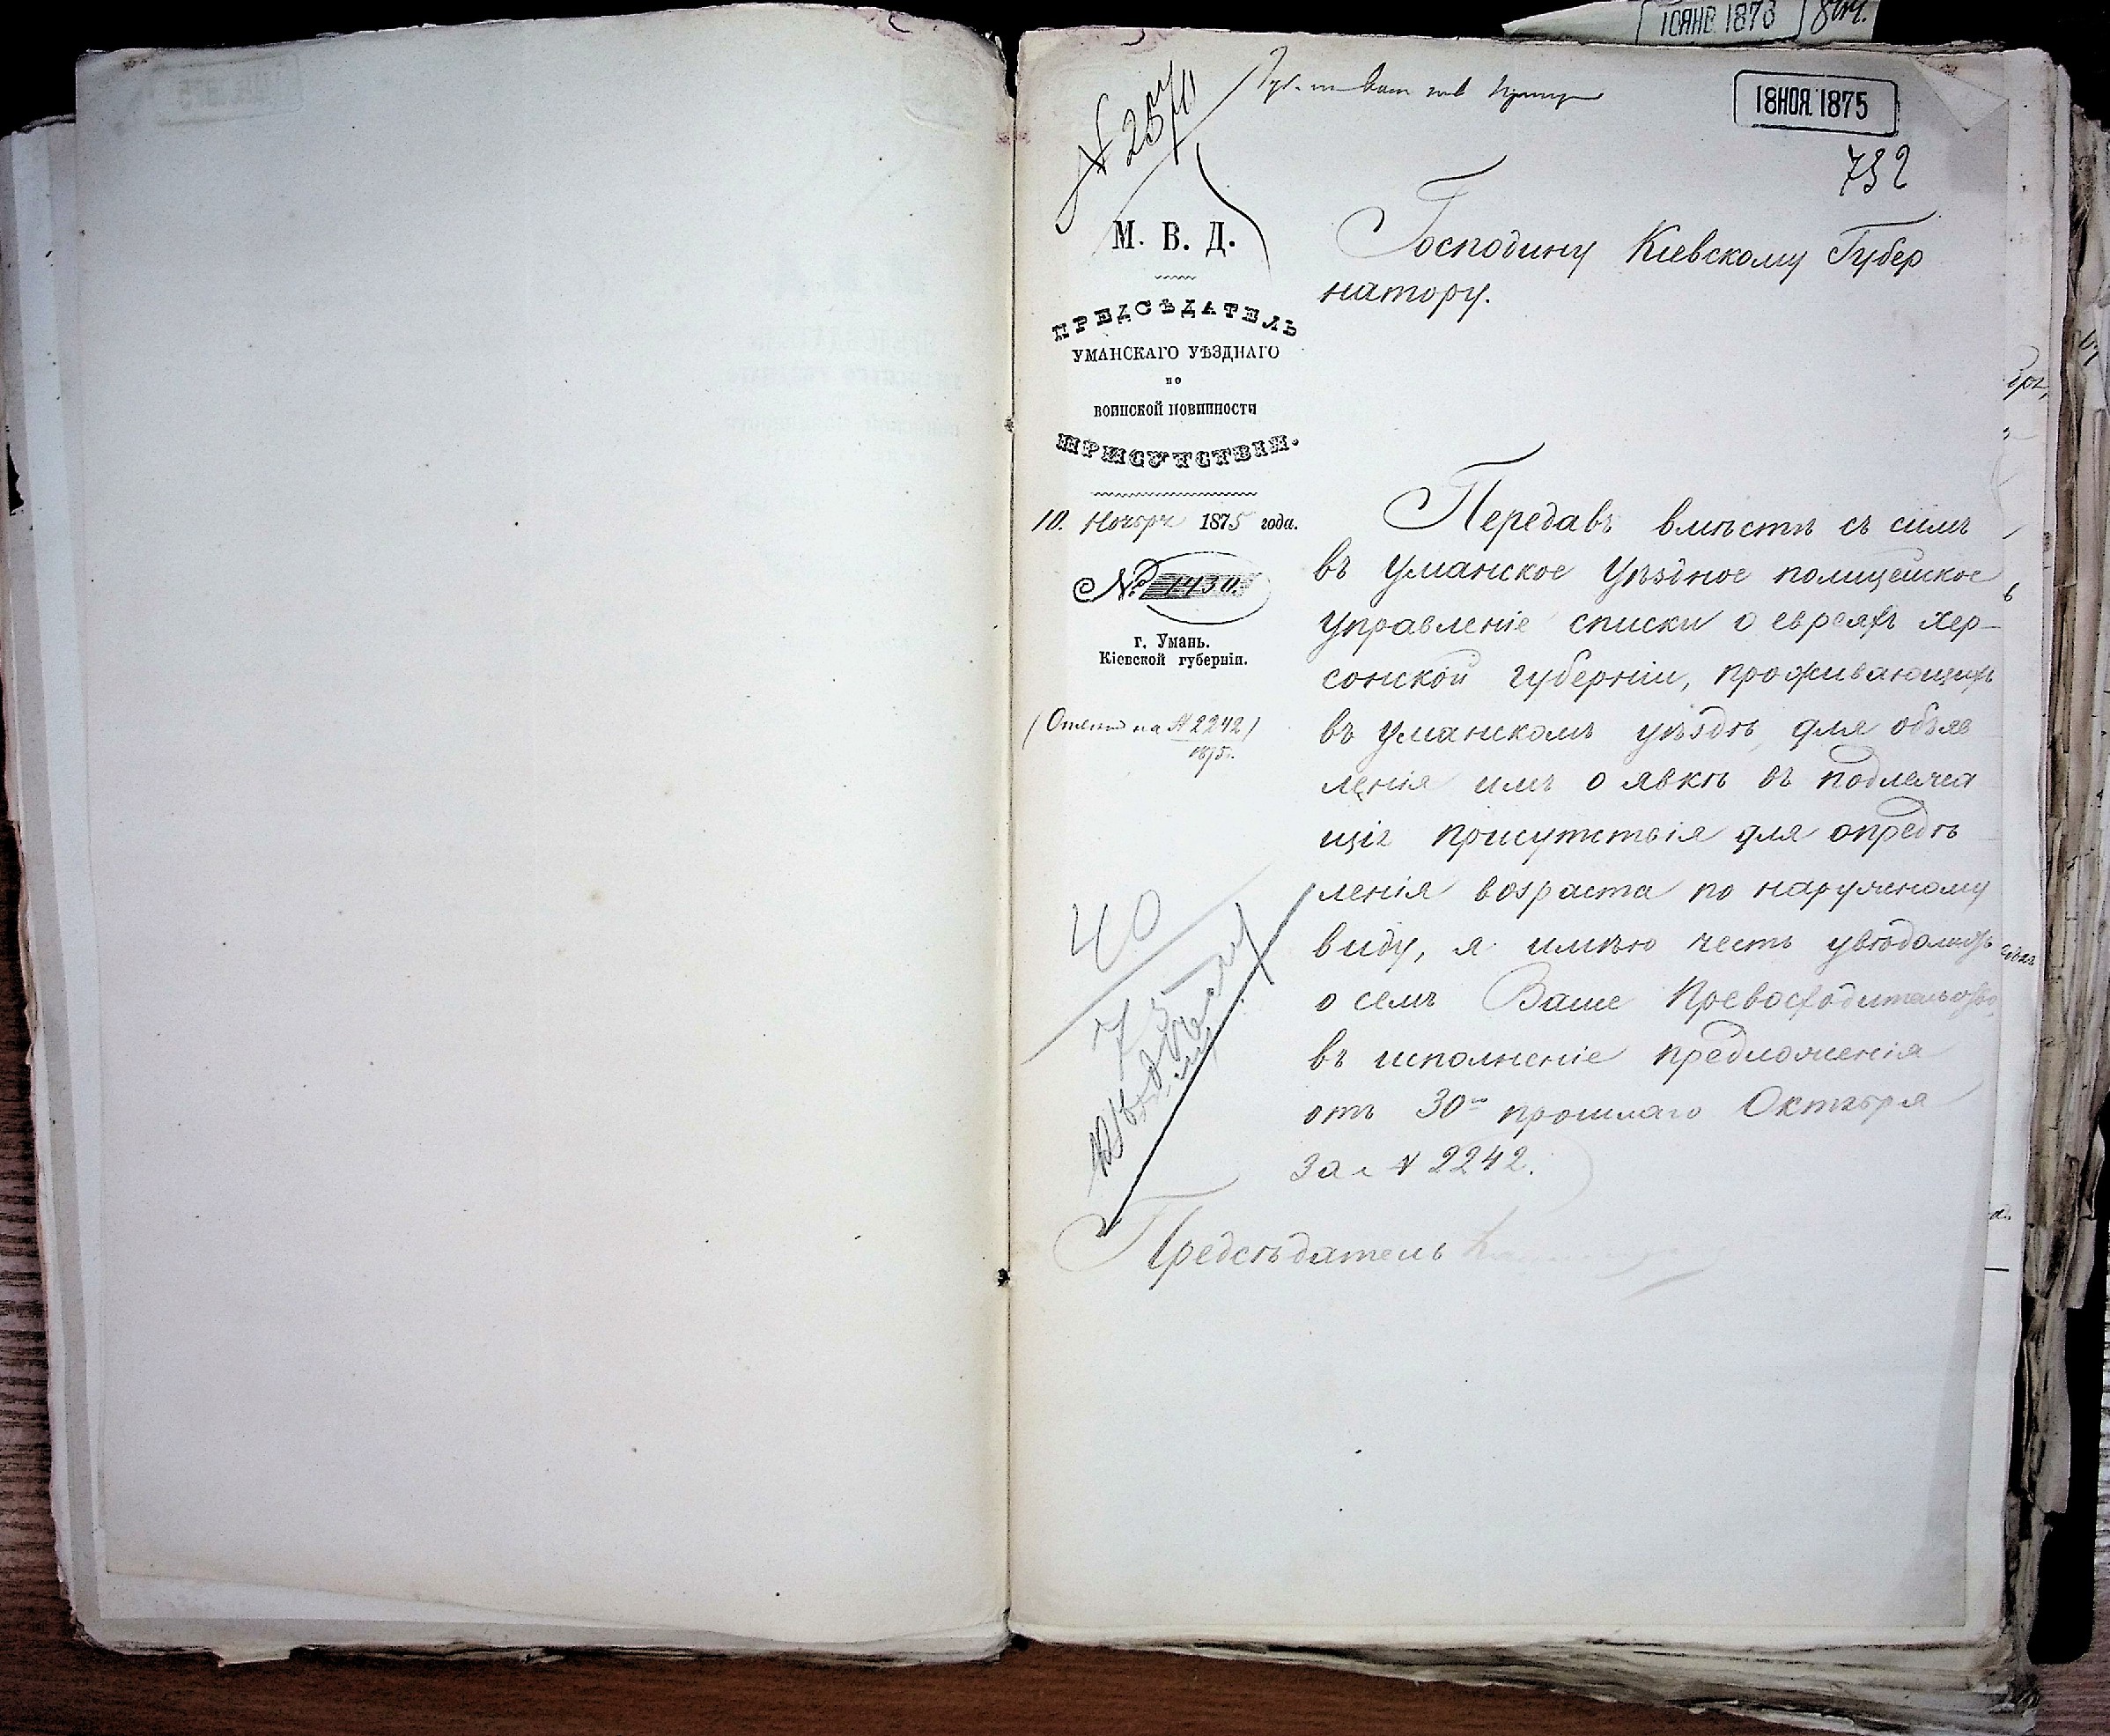 10ЯНВ 1876
18НОЯ. 1875
732
М. В. Д.
ПРЕДСѢДАТЕЛЬ
УМАНСКАГО УѢЗДНАГО
по
ВОИНСКОЙ ПОВИННОСТИ
ПРИСУТСТВІЯ.
10. Ноября 1875 года.
№ 1430.
г. Умань.
Кіевской губерніи.
(Отвѣтъ на № 2242)
1875 г.
Господину Кіевскому Губер
натору.
Передавъ вмѣстѣ съ симъ
въ Уманское Уѣздное полицейское
управленіе списки о евреяхъ Хер-
сонской губерніи, проживающихъ
въ Уманскомъ уѣздѣ, для объяв
ленія имъ о явкѣ въ подлежа
щія присутствія для опредѣ
ленія возраста по наружному
виду, я имѣю честь увѣдомить
о семъ Ваше Превосходительство,
въ исполненіе предложенія
отъ 30го прошлаго Октября
за № 2242.
Предсѣдатель
40